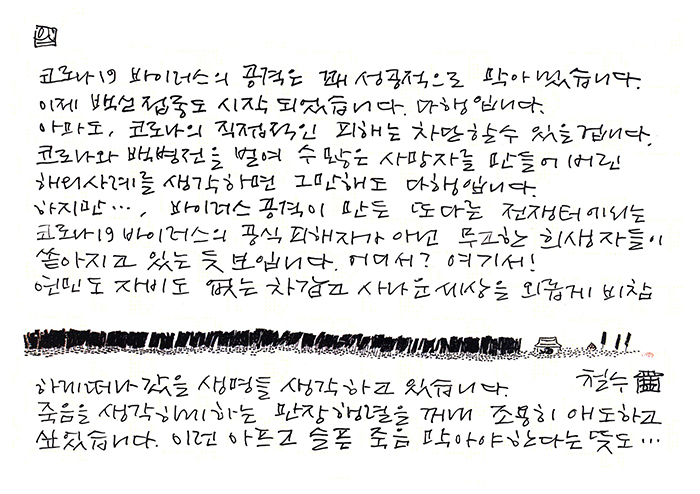 코로나19 바이러스의 공격은 꽤 성공적으로 막아냈습니다.
이제 백신 접종도 시작 되었습니다. 다행입니다.
아마도, 코로나의 직접적인 피해는 차단할 수 있을겁니다.
코로나와 백병전을 벌여 수많은 사망자를 만들어버린
해외사례를 생각하면 그만해도 다행입니다.
하지만…, 바이러스 공격이 만든 또다른 전쟁터에서는
코로나19 바이러스의 공식 피해자가 아닌 무고한 희생자들이
쏟아지고 있는 듯 보입니다. 어디서? 여기서!
연민도 자비도 없는 차갑고 사나운 세상을 외롭게 비참
하게 떠나갔을 생명들 생각하고 있습니다.
철수
죽음을 생각하게 하는 판장행렬을 꺼내 조용히 애도하고
싶었습니다. 이런 아프고 슬픈 죽음 막아야한다는 뜻도…